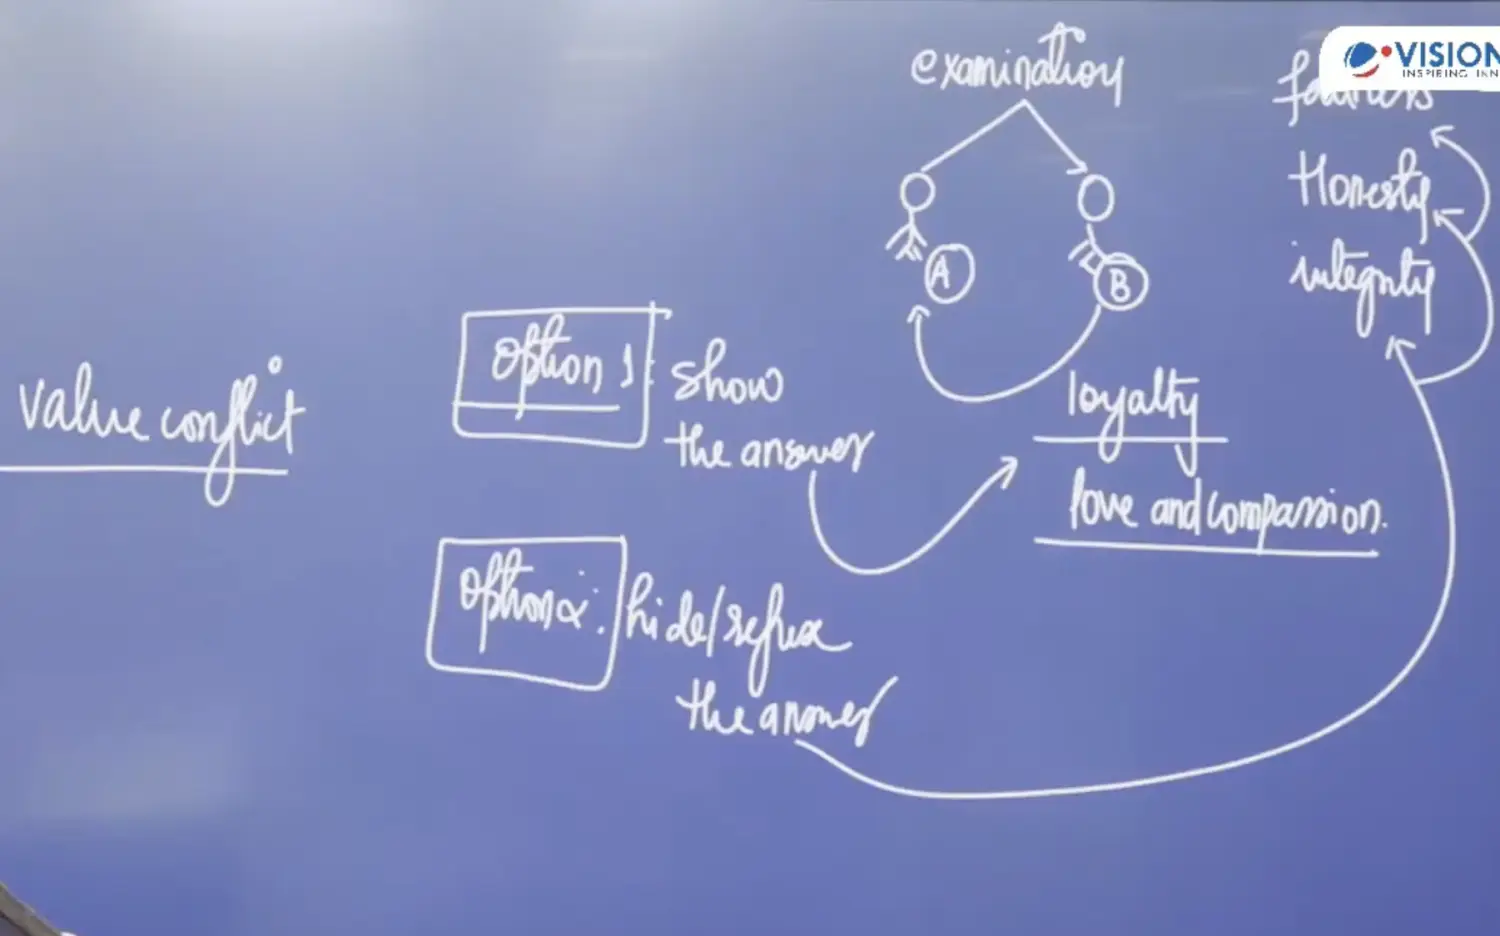 examination
VISION
INSPIRING INN
fairness
Honesty
integrity
A
B
value conflict
Option 1: show
the answer
loyalty
love and compassion.
Option 2: hide/refuse
the answer